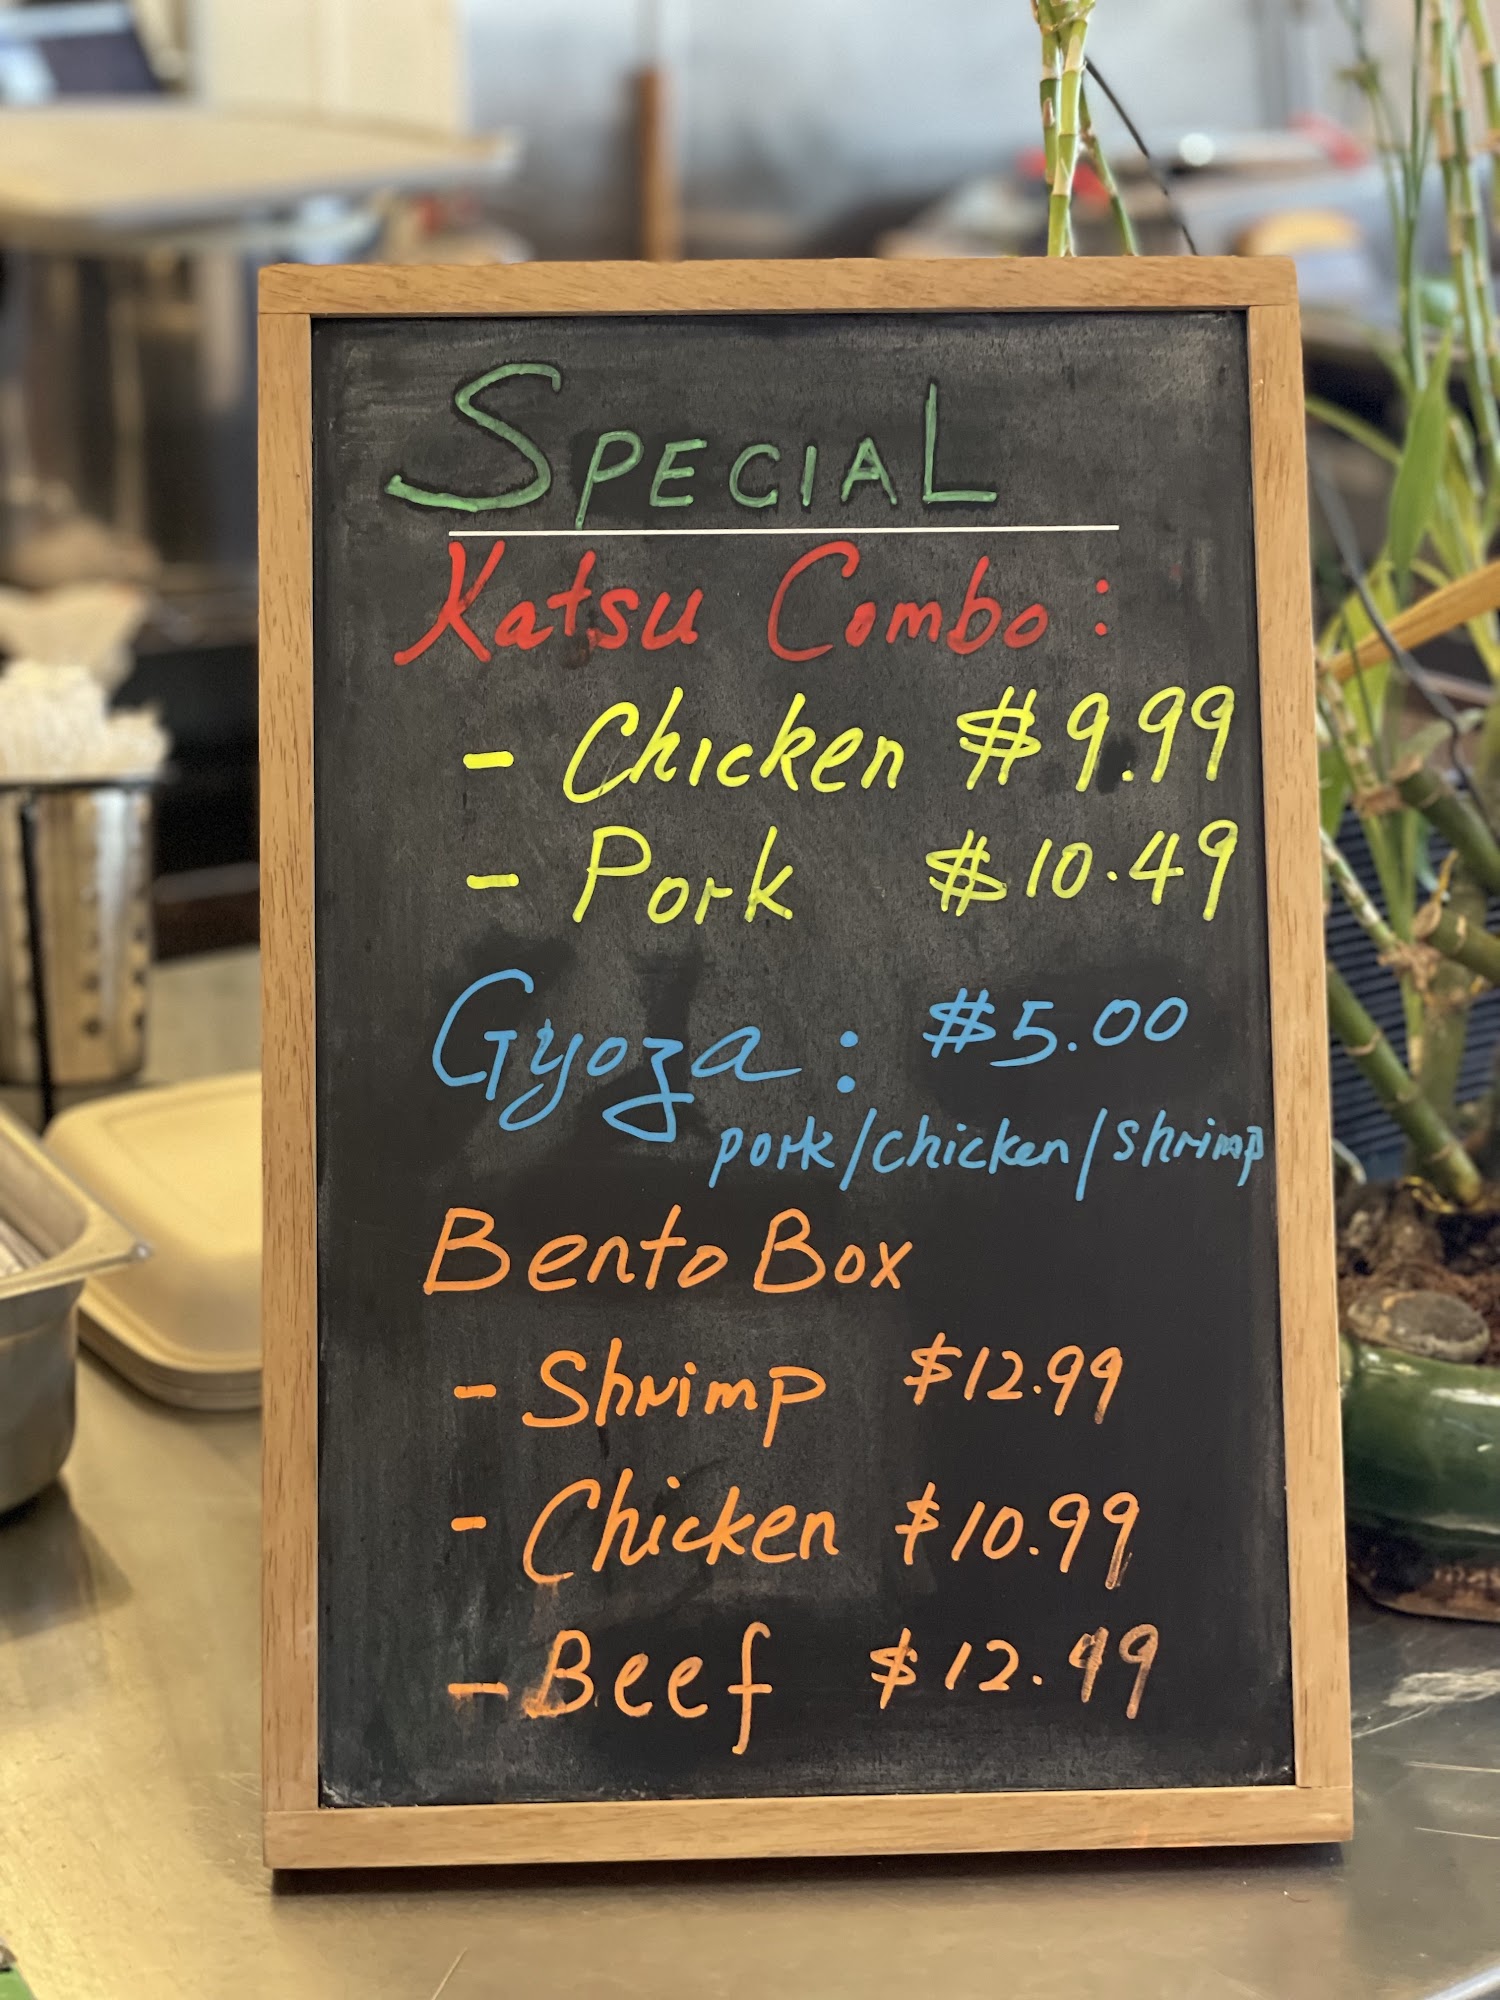 SPECIAL
Katsu Combo:
- Chicken $9.99
- Pork $10.49
Gyoza: $5.00
pork/chicken/shrimp
Bento Box
- Shrimp $12.99
- Chicken $10.99
- Beef $12.49